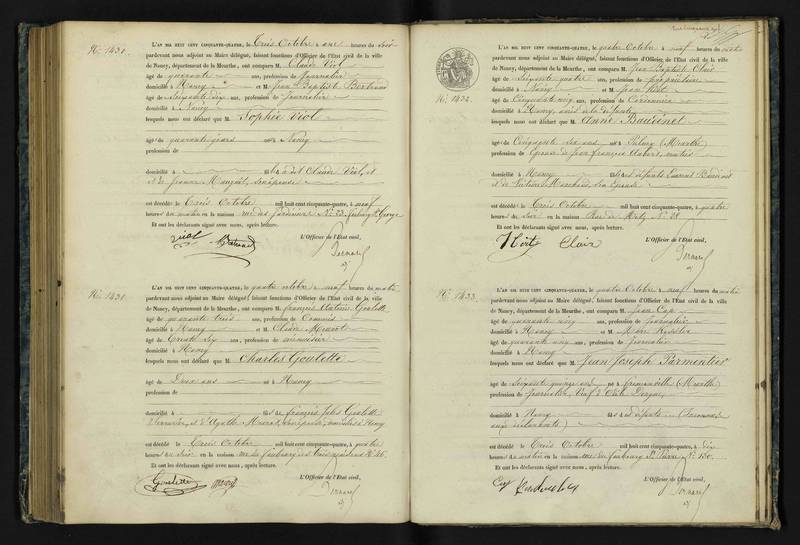 N.º 1430.
L'AN MIL HUIT CENT CINQUANTE-QUATRE, le trois Octobre à onze heures du
pardevant nous adjoint au Maire délégué, faisant fonctions d'Officier de l'Etat civil de la ville
de Nancy, département de la Meurthe, ont comparu M. Claude Viol
âgé de quarante ans, profession de Journalier
domicilié à Nancy et M. Jean Baptiste Bertrand
âgé de soixante dix ans, profession de Journalier
domicilié à Nancy
lesquels nous ont déclaré que M. Sophie Viol
âgé de quarante jours né à Nancy
profession de
domicilié à fils dudit Claude Viol, et
et de son épouse
est décédé le trois Octobre mil huit cent cinquante-quatre, à neuf
heures du matin en la maison rue des Jardiniers N.º 33 faubourg St George
Et ont les déclarants signé avec nous, après lecture.
L'Officier de l'Etat civil,
Bernard
N.º 1431.
L'AN MIL HUIT CENT CINQUANTE-QUATRE, le quatre octobre à neuf heures du matin
pardevant nous adjoint au Maire délégué, faisant fonctions d'Officier de l'Etat civil de la ville
de Nancy, département de la Meurthe, ont comparu M. François Antoine Goulette
âgé de quarante trois ans, profession de Commis
domicilié à Nancy et M. Claude
âgé de trente six ans, profession de menuisier
domicilié à Nancy
lesquels nous ont déclaré que M. Charles Goulette
âgé de Deux ans né à Nancy
profession de
domicilié à fils de François Jules Goulette
Serrurier, et d'Agathe son épouse, domiciliés à Nancy
est décédé le trois Octobre mil huit cent cinquante-quatre, à quatre
heures du soir en la maison rue du faubourg des trois maisons N.º 46.
Et ont les déclarants signé avec nous, après lecture.
L'Officier de l'Etat civil,
Goulette
Bernard
N.º 1432.
L'AN MIL HUIT CENT CINQUANTE-QUATRE, le quatre Octobre à neuf heures du matin
pardevant nous adjoint au Maire délégué, faisant fonctions d'Officier de l'Etat civil de la ville
de Nancy, département de la Meurthe, ont comparu M. Jean Baptiste
âgé de soixante quatre ans, profession de propriétaire
domicilié à Nancy et M. Jean
âgé de cinquante cinq ans, profession de Cordonnier
domicilié à Nancy, amis de la défunte
lesquels nous ont déclaré que M. Anne Baudinet
âgé de Cinquante six ans né à Pulnoy (Meurthe)
profession de épouse de Jean François
domicilié à Nancy fils des défunts Baudinet
et de son épouse
est décédé le trois Octobre mil huit cent cinquante-quatre, à quatre
heures du soir en la maison Rue de Metz N.º 28
Et ont les déclarants signé avec nous, après lecture.
L'Officier de l'Etat civil,
Bernard
N.º 1433.
L'AN MIL HUIT CENT CINQUANTE-QUATRE, le quatre Octobre à neuf heures du matin
pardevant nous adjoint au Maire délégué, faisant fonctions d'Officier de l'Etat civil de la ville
de Nancy, département de la Meurthe, ont comparu M. Jean Cap
âgé de quarante cinq ans, profession de Journalier
domicilié à Nancy et M.
âgé de quarante cinq ans, profession de journalier
domicilié à Nancy
lesquels nous ont déclaré que M. Jean Joseph Parmentier
âgé de soixante quinze ans né à (Meurthe)
profession de Journalier, Veuf d'
domicilié à Nancy fils des défunts (inconnus
aux déclarants)
est décédé le trois Octobre mil huit cent cinquante-quatre, à dix
heures du matin en la maison rue du faubourg St Pierre N.º 150.
Et ont les déclarants signé avec nous, après lecture.
L'Officier de l'Etat civil,
Cap
Bernard